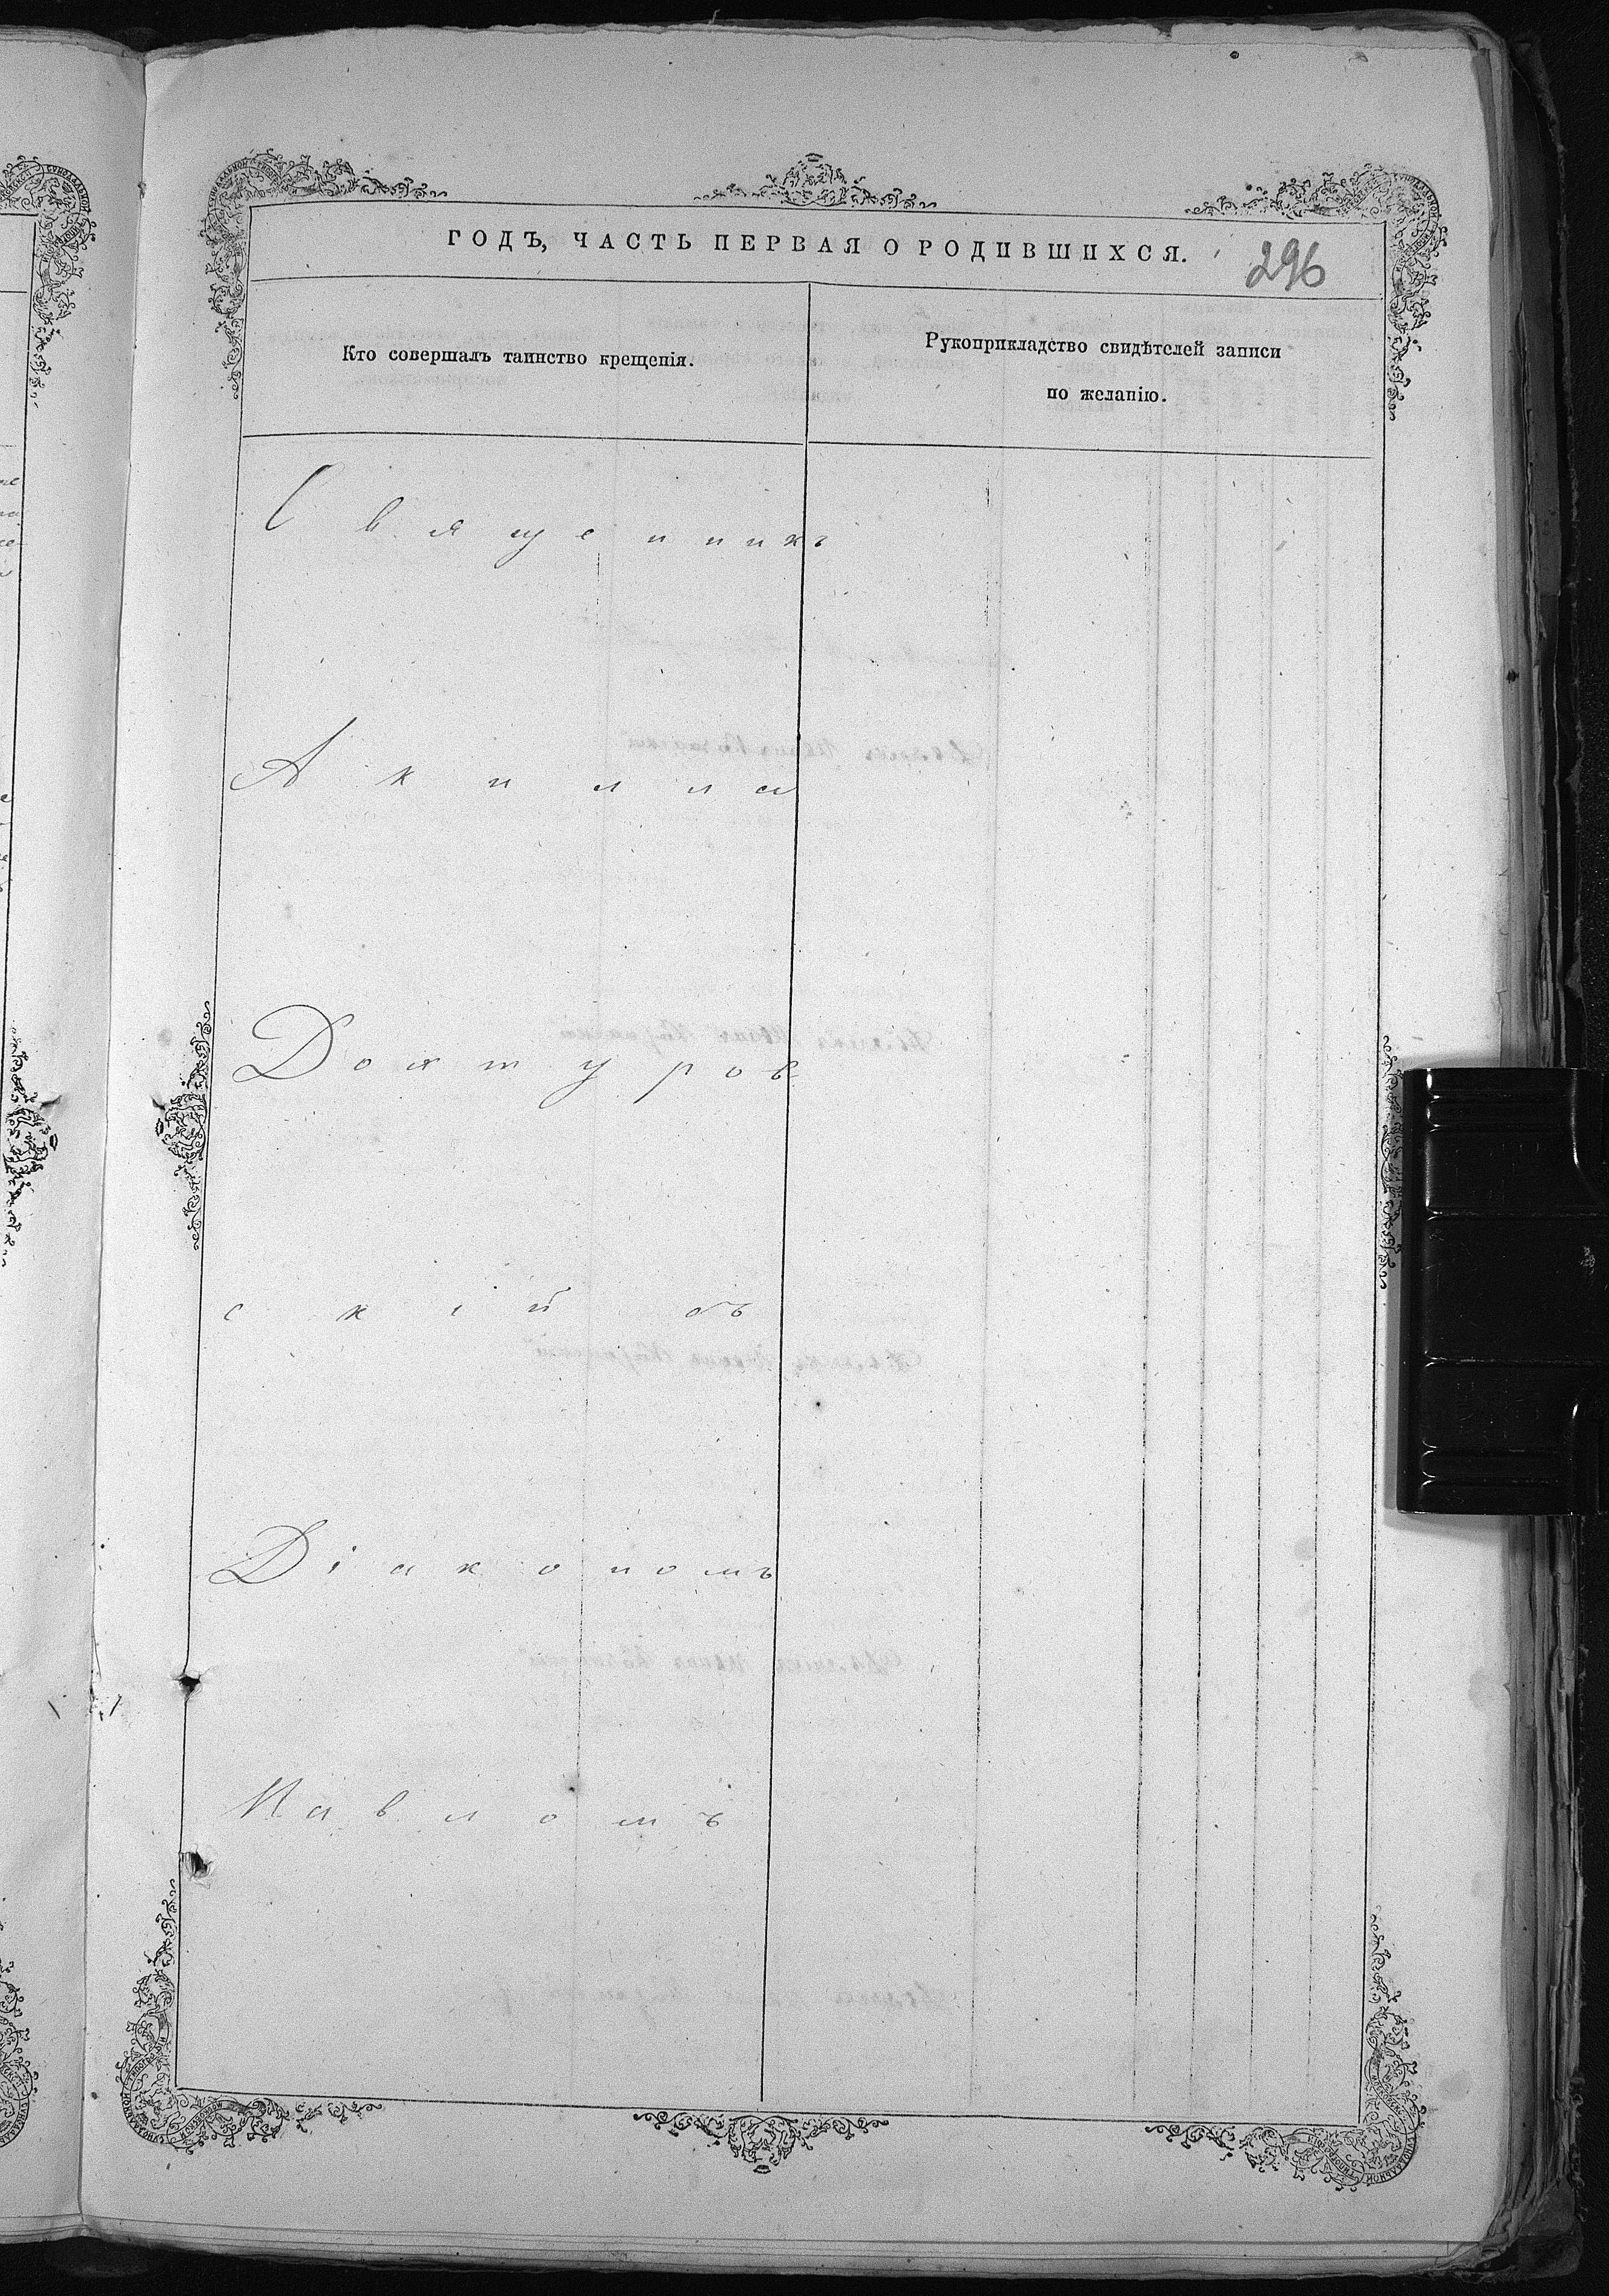 ГОДЪ, ЧАСТЬ ПЕРВАЯ О РОДИВШИХСЯ.
296
Кто совершалъ таинство крещенія.
Рукоприкладство свидѣтелей записи
по желанію.
Священникъ
Акилла
Доктуров
скій съ
Діакономъ
Павломъ